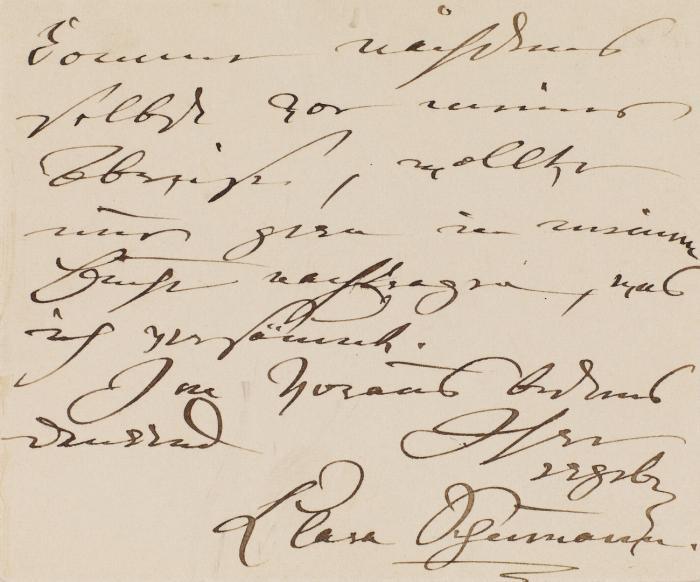 komme nächstens
selbst vor meiner
Abreise, wollte
nur gern in meinem
Buch nachtragen, was
ich versäumt.
Im Voraus bestens
dankend Ihre
ergeb.
Clara